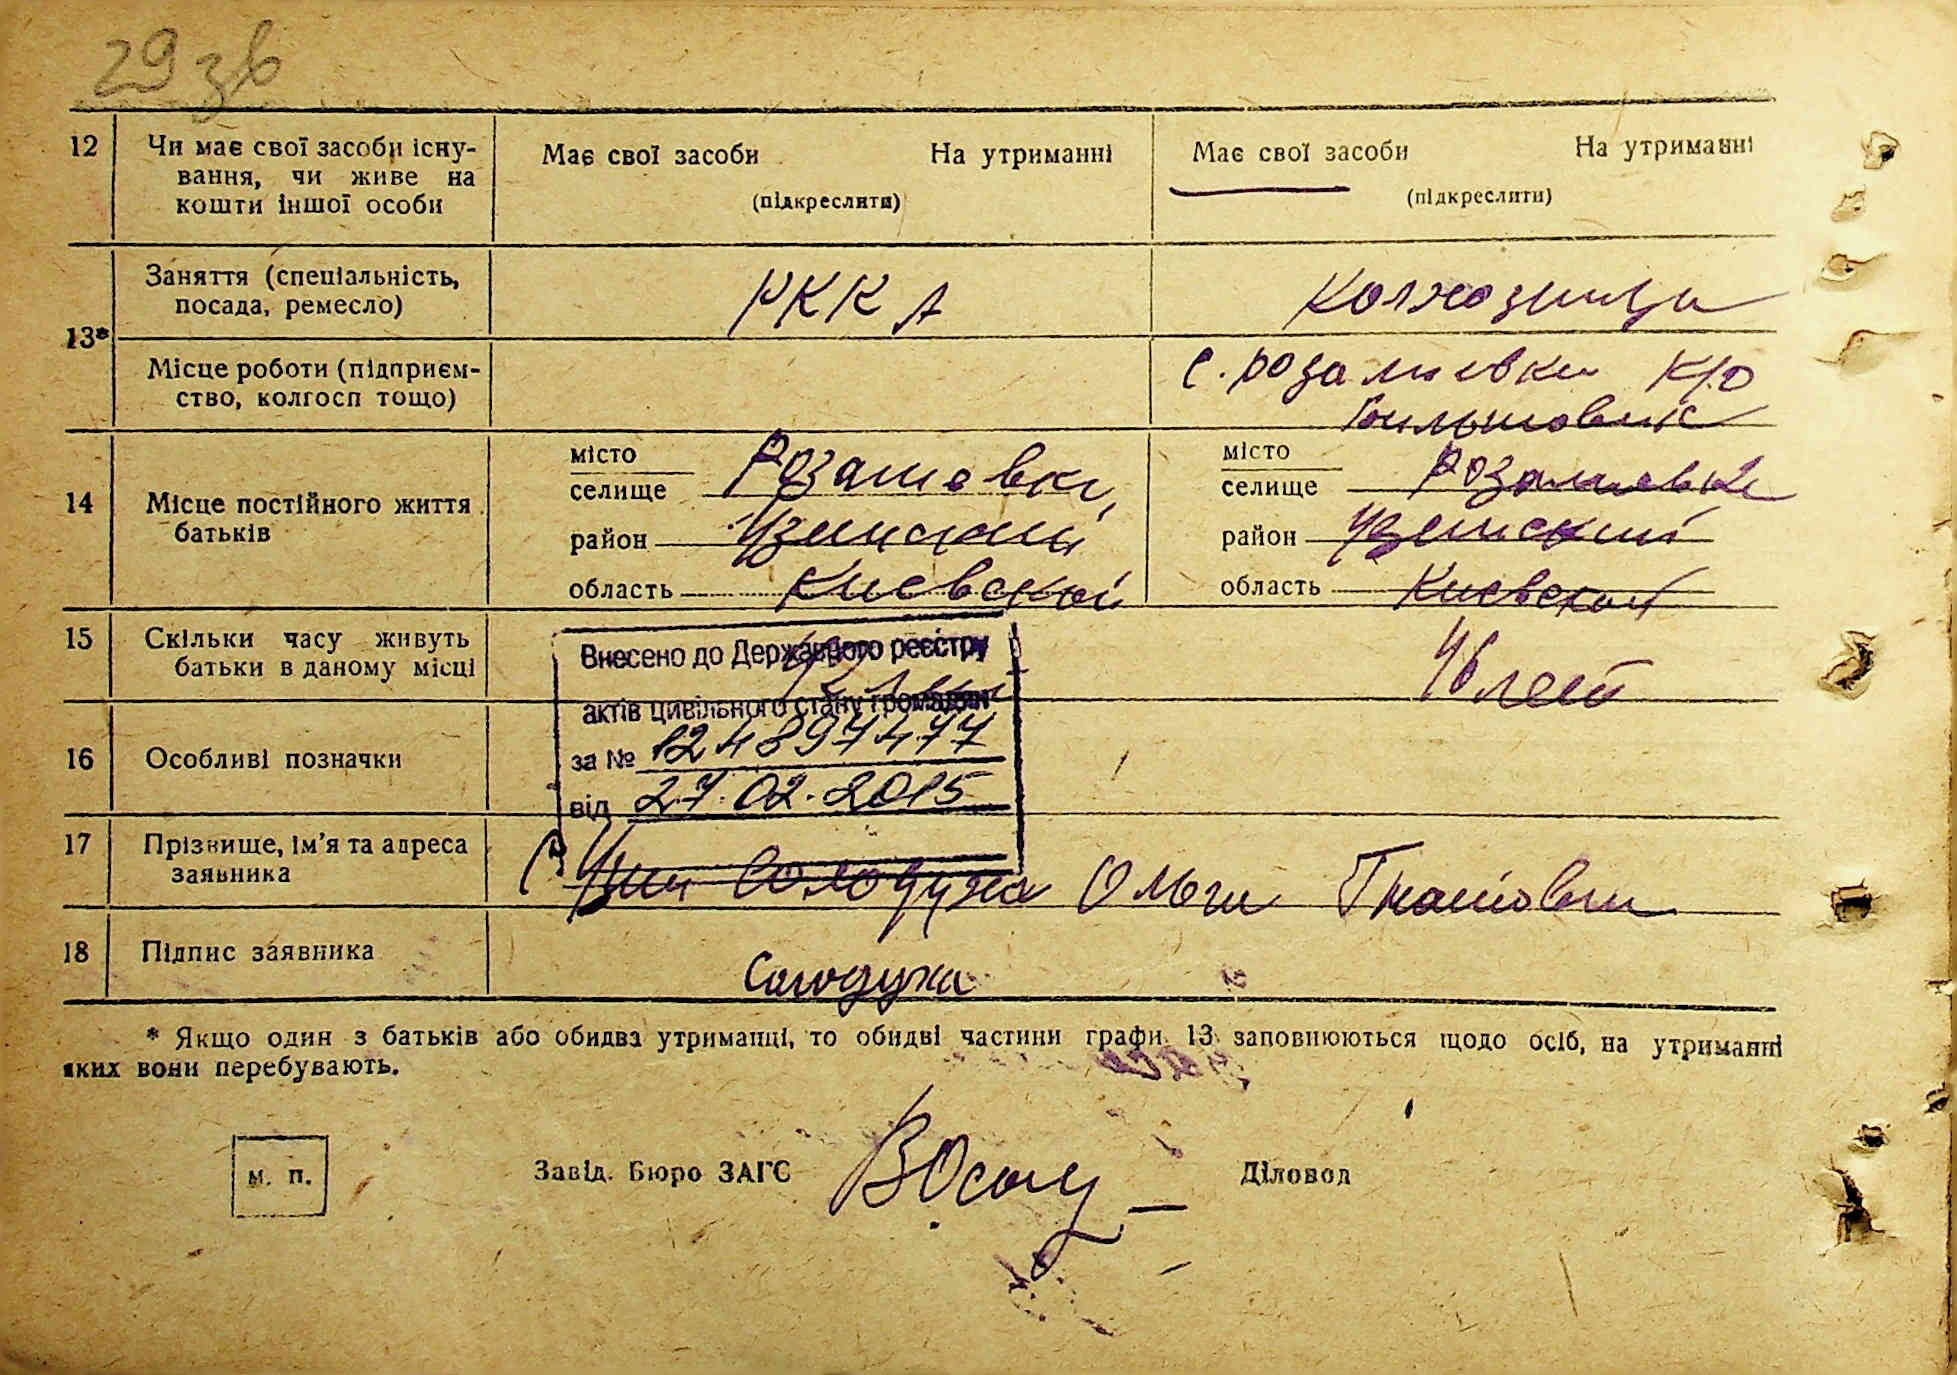 29 зв
12 Чи має свої засоби існу- Має свої засоби На утриманні Має свої засоби На утриманні
вання, чи живе на
кошти іншої особи (підкреслити) (підкреслити)
Заняття (спеціальність, РККА Колхозница
посада, ремесло)
13*
Місце роботи (підприєм- с. Розалиевки К/о
ство, колгосп тощо) Більшовик
14 Місце постійного життя батьків
місто місто
селище Розалиевки, селище Розалиевке
район Узинский район Узинский
область Киевской область Киевской
15 Скільки часу живуть
батьки в даному місці 46 лет
Внесено до Державного реєстру
актів цивільного стану громадян
за № 124897477
від 27.02.2015
16 Особливі позначки
17 Прізвище, ім'я та адреса
заявника Солодуха Ольги Гнатовни
18 Підпис заявника Солодуха
* Якщо один з батьків або обидва утриманці, то обидві частини графи 13 заповнюються щодо осіб, на утриманні
яких вони перебувають.
м. п. Завід. Бюро ЗАГС Діловод